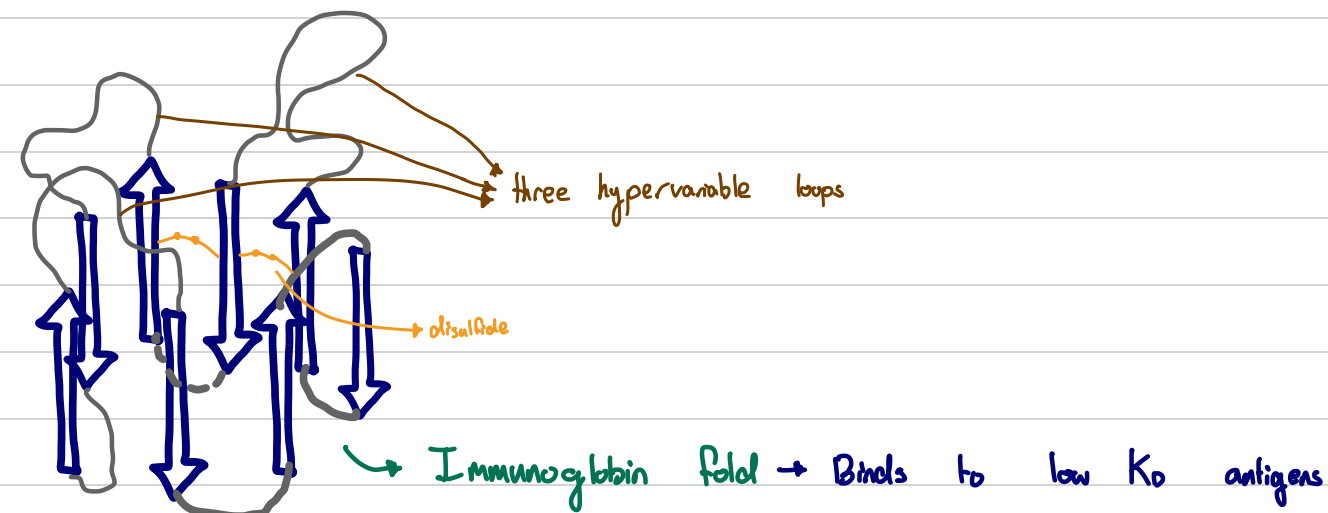 three hypervariable loops
disulfide
Immunoglobin fold → Binds to low K_D antigens